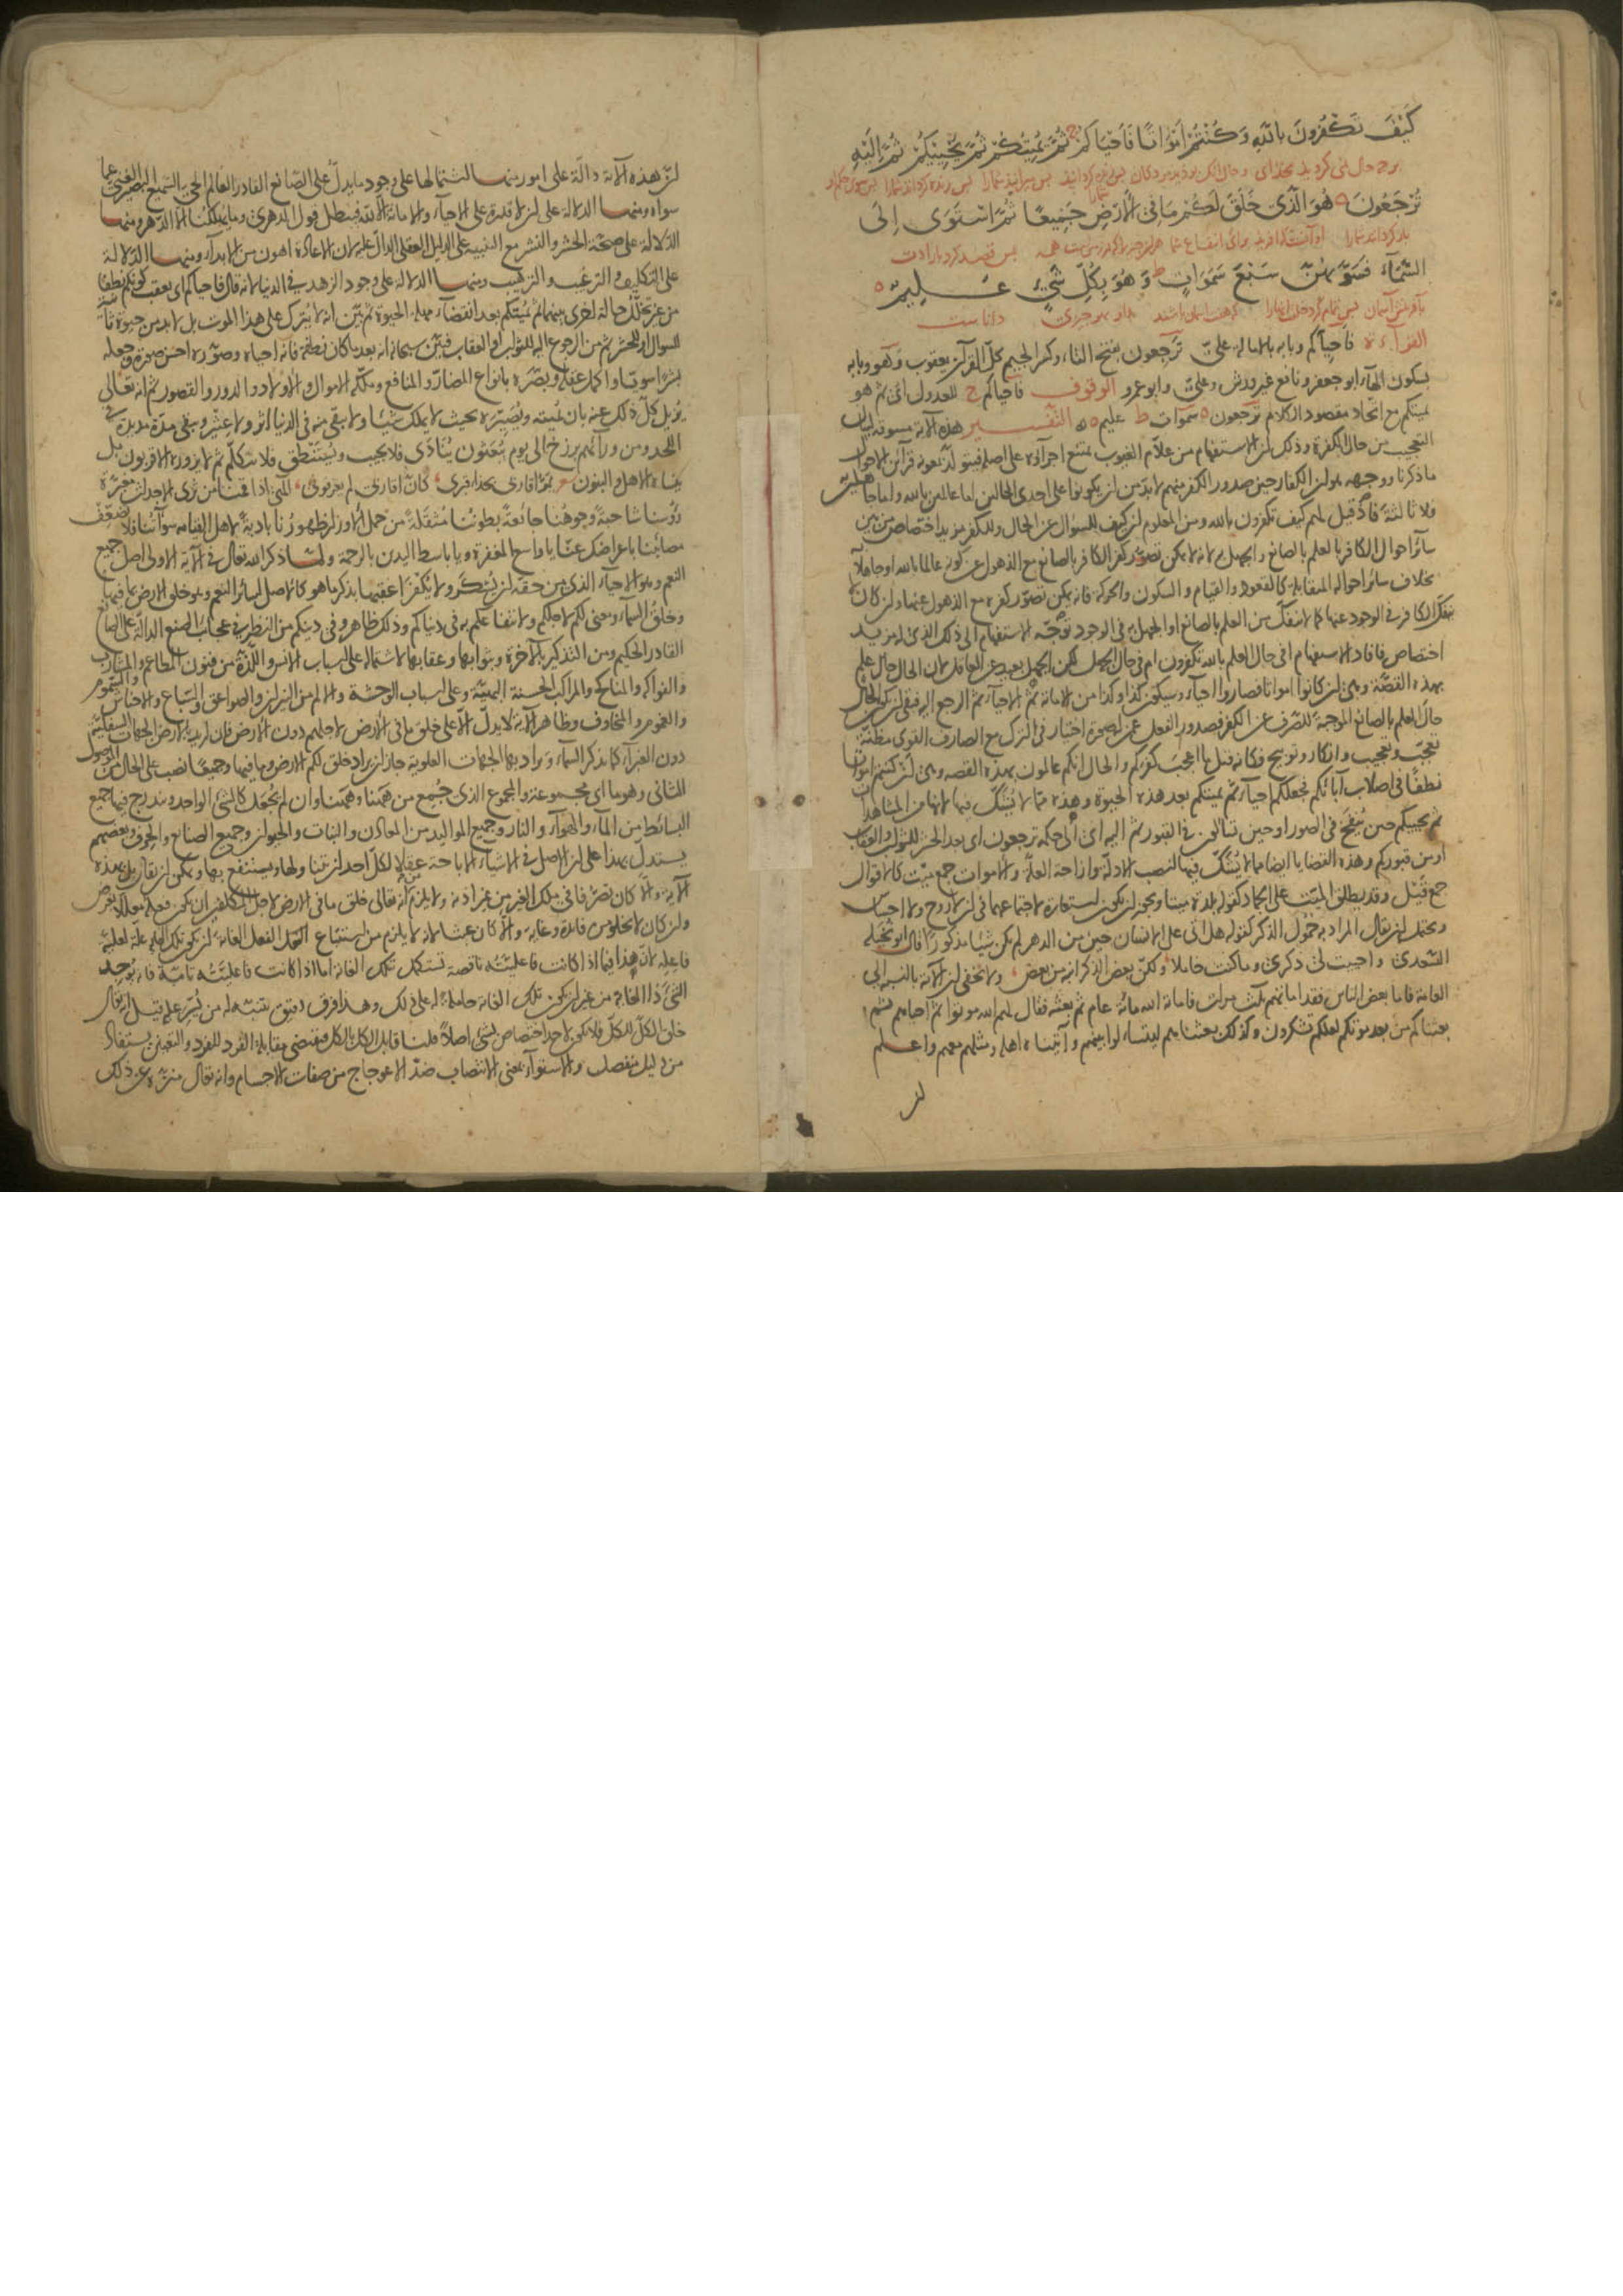 كَيْفَ تَكْفُرُونَ بِاللّٰهِ وَكُنْتُمْ أَمْوَاتًا فَأَحْيَاكُمْ ج ثُمَّ يُمِيتُكُمْ ثُمَّ يُحْيِيكُمْ ثُمَّ إِلَيْهِ
تُرْجَعُونَ ه هُوَ الَّذِي خَلَقَ لَكُمْ مَا فِي الْأَرْضِ جَمِيعًا ثُمَّ اسْتَوَى إِلَى
السَّمَاءِ فَسَوَّاهُنَّ سَبْعَ سَمَوَاتٍ ط وَهُوَ بِكُلِّ شَيْءٍ عَلِيمٌ ه
القراءة فاحياكم وبابه بالامالة علىّ تَرجعون بفتح التاء وكسر الجيم كل القرآن يعقوب وَهْو وبابه
بسكون الهاء ابو جعفر ونافع غير ورش وعلىّ وابو عمرو الوقوف فاحياكم ج للعدول اى ثم هو
يميتكم مع اتحاد مقصود الكلام ترجعون ه سموات ط عليم ه التفسير هذه الآية مسوقة لبيان
التعجب من حال الكفرة وذلك ان الاستفهام من علام الغيوب يمتنع اجراؤه على اصله فيتولد بمعونة قرائن الاحوال
ما ذكرنا ووجهه هو ان الكفار حين صدور الكفر منهم لا بد من ان يكونوا على احدى الحالين اما عالمين بالله واما جاهلين
فلا ثالثة فاذا قيل لهم كيف تكفرون بالله ومن المعلوم ان كيف للسؤال عن الحال وللكفر مزيد اختصاص من بين
سائر احوال الكافر بالعلم بالصانع والجهل به لانه لا يمكن تصور كفر الكافر بالصانع مع الذهول عن كونه عالما بالله او جاهلا
بخلاف سائر احواله المتقابلة كالقعود والقيام والسكون والحركة فانه يمكن تصور كفره مع الذهول عنها وان كان لا
ينفك الكافر فى الوجود عنها كما لا ينفك من العلم بالصانع او الجهل به فى الوجود توجّه الاستفهام الى ذلك الذى له مزيد
اختصاص فافاد الاستفهام افى حال العلم بالله تكفرون ام فى حال الجهل لكن الجهل بعيد عن العاقل لان الحال حال علم
بهذه القصة وهى ان كانوا امواتا فصاروا احياء وسيكون كذا وكذا من الاماتة ثم الاحياء ثم الرجع اليه فبقى ان يكون الحال
حال العلم بالصانع الموجبة للصرف عن الكفر فصدور الفعل عن له صحة اختيار فى الترك مع الصارف القوى مظنة
تعجّب وتعجيب وانكار وتوبيخ فكانه قيل ما اعجب كفركم والحال انكم عالمون بهذه القصة وهى ان كنتم امواتا
نطفًا فى اصلاب آبائكم فجعلكم احياء ثم يميتكم بعد هذه الحيوة وهذه مما لا يُشكّ فيها لانها من المشاهدات
ثم يحييكم حين يُنفخ فى الصور او حين تسألون فى القبور ثم اليه اى الى حكمه ترجعون اى بعد الحشر للثواب والعقاب
او من قبوركم وهذه القضايا ايضا مما لا يُشكّ فيها لنصب الادلة وازاحة العلة والاموات جمع ميّت كالاقوال
جمع قَيْل وقد يطلق الميت على الجماد كقوله بلدة ميتا ويجوز ان يكون استعارة لاجتماعهما فى ان لا روح ولا احساس
ويحتمل ان يقال المراد به خمول الذكر كقوله هل اتى على الانسان حين من الدهر لم يكن شيئا مذكورًا قال ابو نخيلة
السعدى واحييت لى ذكرى وما كنت خاملا ولكن بعض الذكر انبه من بعض ولا يخفى ان الآية بالنسبة الى
العامة فاما بعض الناس فقد اماتهم ثلث مرات فاماته الله مائة عام ثم بعثه فقال لهم الله موتوا ثم احياهم ثم
بعثناكم من بعد موتكم لعلكم تشكرون وكذلك بعثناهم ليتساءلوا بينهم وآتيناه اهله ومثلهم معهم واعلم
ان
ان هذه الآية دالة على امور منها اشتمالها على وجود ما يدل على الصانع القادر العالم الحى السميع البصير الغنى عما
سواه ومنها الدلالة على ان لا قدرة على الاحياء والاماتة الا لله فيبطل قول الدهرى وما يهلكنا الا الدهر ومنها
الدلالة على صحة الحشر والنشر مع التنبيه على الدليل العقلى الدال عليه لان الاعادة اهون من الابداء ومنها الدلالة
على التكليف والترغيب والترهيب ومنها الدلالة على وجود الزهد فى الدنيا لانه قال فاحياكم اى بعقب كونكم نطفا
من غير تخلّل حالة اخرى بينهما ثم يميتكم بعد انقضاء مهلة الحيوة ثم بيّن انه لا يُترك على هذا الموت بل لا بد من حيوة ثانية
للسوال او للحشر ثم من الرجوع اليه للثواب او العقاب فبيّن سبحانه انه بعد ما كان نطفة فانه احياه وصوّره احسن صورة وجعله
بشرًا سويّا واكمل عقله وبصّره بانواع المضارّ والمنافع وملّكه الاموال والاولاد والدور والقصور ثم انه تعالى
يُزيل كلّ ذلك عنه بان يُميته ويُصيّره بحيث لا يملك شيئا ولا يبقى منه فى الدنيا اثر ولا عِثْيَر ويبقى مدة مديدة فى
اللحد ومن ورائهم برزخ الى يوم يُبعثون يُنادَى فلا يجيب ويُستنطق فلا يتكلّم ثم لا يزوره الاقربون بل
ينساه الاهل والبنون يمرّ اقاربى بحذاء قبرى كأن اقاربى لم يعرفونى الهى اذا قمنا من ثرى الاجداث مغبّرة
رؤسنا شاحبةً وجوهنا جائعةً بطوننا مُثقلةً من حمل الاوزار ظهورُنا باديةً لاهل القيامة سوآتُنا فلا تُضعِّف
مصائبنا باعراضك عنّا يا واسع المغفرة ويا باسط اليدين بالرحمة ولما ذكر الله تعالى فى الآية الاولى اصل جميع
النعم وهو الاحياء الذى من حقه ان يُشكَر ولا يُكفَر اعقبها بذكر ما هو كالاصل لسائر النعم وهو خلق الارض بما فيها
وخلق السماء ومعنى لكم لاجلكم ولانتفاعكم به فى دنياكم وذلك ظاهر وفى دينكم من النظر فى عجائب الصنع الدالة على الصانع
القادر الحكيم ومن التذكير بالآخرة وبثوابها وعقابها لاشتماله على اسباب الانس واللذة من فنون المطاعم والمشارب
والفواكه والمناكح والمراكب الحسنة البهيّة وعلى اسباب الوحشة والالم من النيران والصواعق والسباع والاحناش والسموم
والغموم والمخاوف وظاهر الآية لا يدلّ الا على خلق ما فى الارض لاجلهم دون الارض فان اريد بالارض الجهات السفلية
دون الغبراء كما يذكر السماء ويراد بها الجهات العلوية جاز ان يراد خلق لكم الارض وما فيها وجميعًا نصب على الحال من الموصول
الثانى وهو ما اى مجموعة والمجموع الذى جُمع من ههنا وههنا وان لم يُجعَل كالشئ الواحد ويندرج فيها جميع
البسائط من الماء والهواء والنار وجميع المواليد من المعادن والنبات والحيوان وجميع الصنائع والحرف وبعضهم
يستدل بهذا على ان الاصل فى الاشياء الاباحة عقلا لكل احد ان يتناولها ويستنفع بها ويمكن ان يقال بل بهذه
الآية والّا كان تصرّفا فى ملك الغير من غير اذنه ولا يلزم من انه تعالى خلق ما فى الارض لاجل المكلفين ان يكون فعله معللًا بغرض
وان كان لا يخلو من فائدة وغاية والا كان عبثا لانه لا يلزم من استتباع الفعل الغاية ان يكون تلك الغاية علة لعلية
فاعله لان هذا فيما اذا كانت فاعليّتُه ناقصة تستكمل بتلك الغاية اما اذا كانت فاعليّتُه تامّة فانه يُوجِد
الشئ ذا الغاية من غير ان يكون تلك الغاية حاملة له على ذلك وهذا فرق دقيق يتنبّه له من يُسّر عليه قيل انه تعالى
خلق الكل للكل فلا يكون لاحد اختصاص بشئ اصلًا قلنا قابل الكل بالكل فيقتضى مقابلة الفرد للفرد والتعيين يستفاد
من دليل منفصل والاستواء بمعنى الانتصاب ضدّ الاعوجاج من صفات الاجسام وانه تعالى منزّه عن ذلك